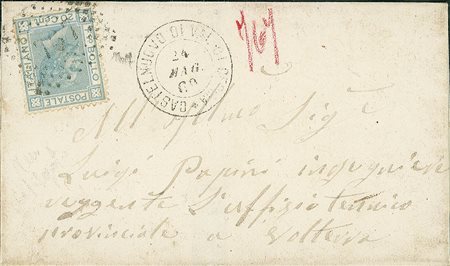 20 Cent
BOLLO
POSTALE
ITALIANO
CASTELNUOVO DI VAL DI CECINA
24
MAG
69
All' Illmo Sigre
Luigi Papini ingegniere
reggente l'uffizio tecnico
provinciale a Volterra